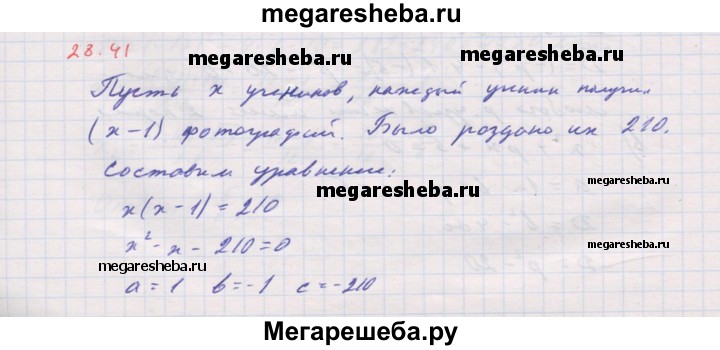 megaresheba.ru
28.41
megaresheba.ru
Пусть x учеников, каждый ученик получил
(x-1) фотографий. Было роздано их 210.
Составим уравнение:
megaresheba.ru
x(x-1)=210
megaresheba.ru
x²-x-210=0
megaresheba.ru
a=1 b=-1 c=-210
Мегарешеба.ру